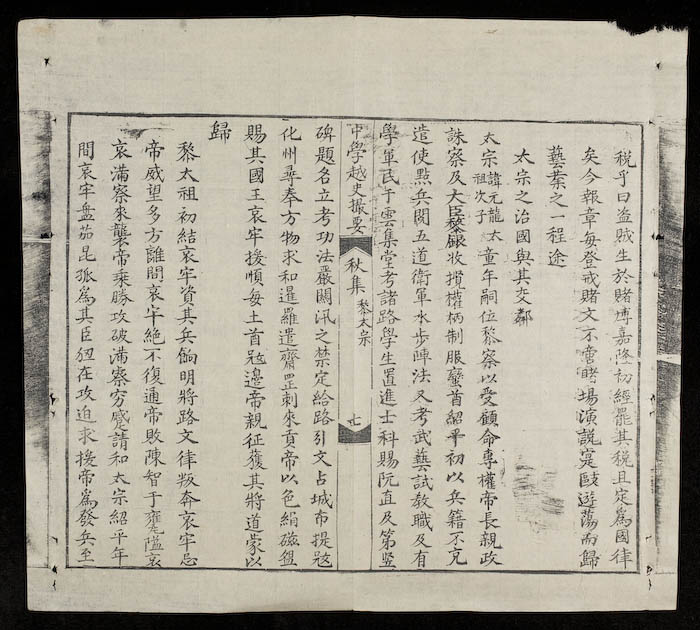 稅乎曰盜賊生於賭博嘉隆初經罷其稅且定爲國律
矣今報章每登戒賭文不啻賭場演說寔
遊蕩而歸
藝業之一程途
太宗之治國與其交鄰
太宗諱元龍太祖次子童年嗣位黎察以受顧命專權帝長親政
誅察及大臣黎銀收攬權柄制服蠻酋紹平初以兵籍不充
造使點兵閱五道衛軍水步陣法又考武藝試教職及有
學軍民于雲集堂考諸路學生置進士科賜阮直及第竪
中學越史撮要 秋集 黎太宗 廿
碑題名立考功法嚴關汛之禁定給路引文占城布提寇
化州尋奉方物求和暹羅遣齋罡剌來貢帝以色絹磁盌
賜其國王哀牢援順每土首寇邊帝親征獲其將道蒙以
歸
黎太祖初結哀牢資其兵餉明將路文律叛奔哀牢忌
帝威望多方離間哀牢絕不復通帝敗陳智于雍隘哀
哀滿察來襲帝乘勝攻破滿察窮蹙請和太宗紹平年
間哀牢盤茄昆孤爲其臣
在攻迫求援帝爲發兵至